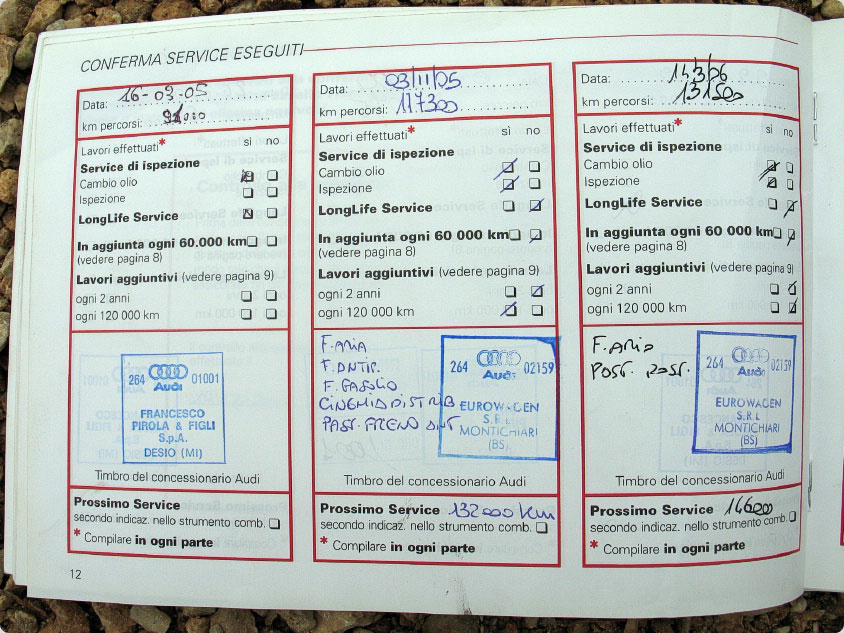 CONFERMA SERVICE ESEGUITI
Data: 16-03-05
km percorsi:
Lavori effettuati* sì no
Service di ispezione
Cambio olio
Ispezione
LongLife Service
In aggiunta ogni 60.000 km
(vedere pagina 8)
Lavori aggiuntivi (vedere pagina 9)
ogni 2 anni
ogni 120 000 km
264 Audi 01001
FRANCESCO
PIROLA & FIGLI
S.p.A.
DESIO (MI)
Timbro del concessionario Audi
Prossimo Service
secondo indicaz. nello strumento comb.
* Compilare in ogni parte
Data: 03/11/05
km percorsi: 117300
Lavori effettuati* sì no
Service di ispezione
Cambio olio
Ispezione
LongLife Service
In aggiunta ogni 60 000 km
(vedere pagina 8)
Lavori aggiuntivi (vedere pagina 9)
ogni 2 anni
ogni 120 000 km
F. ARIA
F. ANTIP.
F. GASOLIO
CINGHIA DISTRIB
PAST. FRENO ANT
264 Audi 02159
EUROWAGEN
S.R.L
MONTICHIARI
(BS)
Timbro del concessionario Audi
Prossimo Service 132000 km
secondo indicaz. nello strumento comb.
* Compilare in ogni parte
Data: 14/3/06
km percorsi: 131500
Lavori effettuati* sì no
Service di ispezione
Cambio olio
Ispezione
LongLife Service
In aggiunta ogni 60 000 km
(vedere pagina 8)
Lavori aggiuntivi (vedere pagina 9)
ogni 2 anni
ogni 120 000 km
F. ARIA
POST.
264 Audi 02159
EUROWAGEN
S.R.L
MONTICHIARI
(BS)
Timbro del concessionario Audi
Prossimo Service
secondo indicaz. nello strumento comb.
* Compilare in ogni parte
12